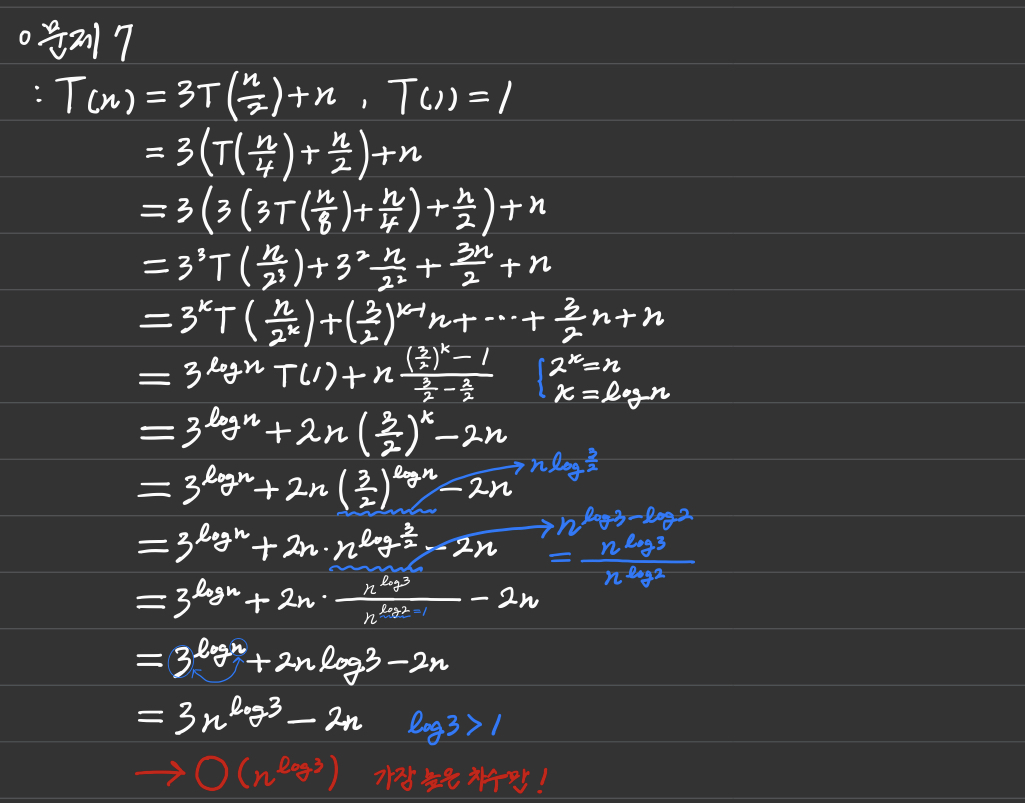 ○ 문제 7
: T(n) = 3T(n/2) + n , T(1) = 1
= 3(T(n/4) + n/2) + n
= 3(3(3T(n/8) + n/4) + n/2) + n
= 3³T(n/2³) + 3² n/2² + 3n/2 + n
= 3^k T(n/2^k) + (3/2)^(k-1) n + ⋯ + 3/2 n + n
= 3^(log n) T(1) + n ((3/2)^k - 1)/(3/2 - 2/2) { 2^k = n
k = log n
= 3^(log n) + 2n (3/2)^k - 2n
= 3^(log n) + 2n (3/2)^(log n) - 2n → n log 3/2
= 3^(log n) + 2n · n^(log 3/2) - 2n → n^(log3 - log2)
= n^(log3) / n^(log2)
= 3^(log n) + 2n · n^(log3) / n^(log2 = 1) - 2n
= 3^(log n) + 2n log3 - 2n
= 3n^(log3) - 2n log3 > 1
→ O(n^(log3)) 가장 높은 차수만!